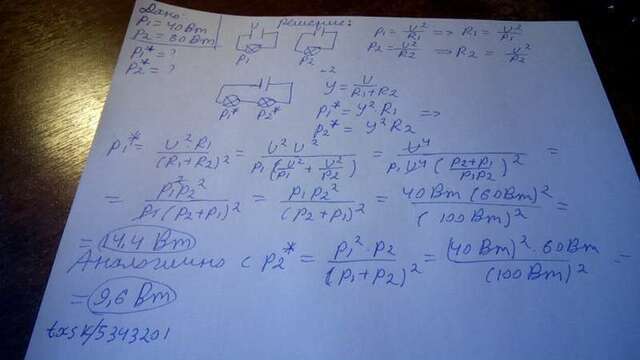 Дано:
P1 = 40 Вт
P2 = 60 Вт
P1* = ?
P2* = ?
Решение:
P1
P2
P1 = U²/R1 => R1 = U²/P1
P2 = U²/R2 => R2 = U²/P2
P1* P2*
У = U/(R1+R2)
P1* = У² R1 =>
P2* = У² R2
P1* = U² R1/(R1+R2)² = U² U²/(P1(U²/P1 + U²/P2)²) = U⁴/(P1 U⁴ ((P2+P1)/(P1P2))²) =
= P1² P2²/(P1(P2+P1)²) = P1P2²/(P2+P1)² = 40 Вт (60 Вт)²/(100 Вт)² =
= 14,4 Вт
Аналогично с P2* = P1² · P2/(P1+P2)² = (40 Вт)² · 60 Вт/(100 Вт)² =
= 9,6 Вт
txsk/5343201